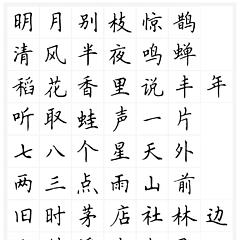 明月别枝惊鹊
清风半夜鸣蝉
稻花香里说丰年
听取蛙声一片
七八个星天外
两三点雨山前
旧时茅店社林边